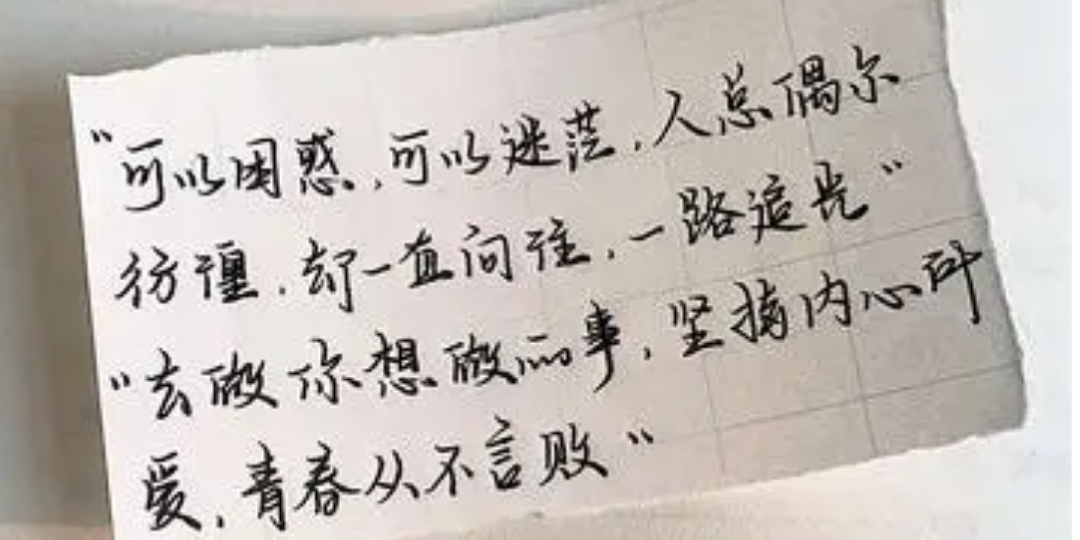 “可以困惑,可以迷茫,人总偶尔
彷徨,却一直向往,一路追光”
“去做你想做的事,坚摘内心所
爱,青春从不言败”